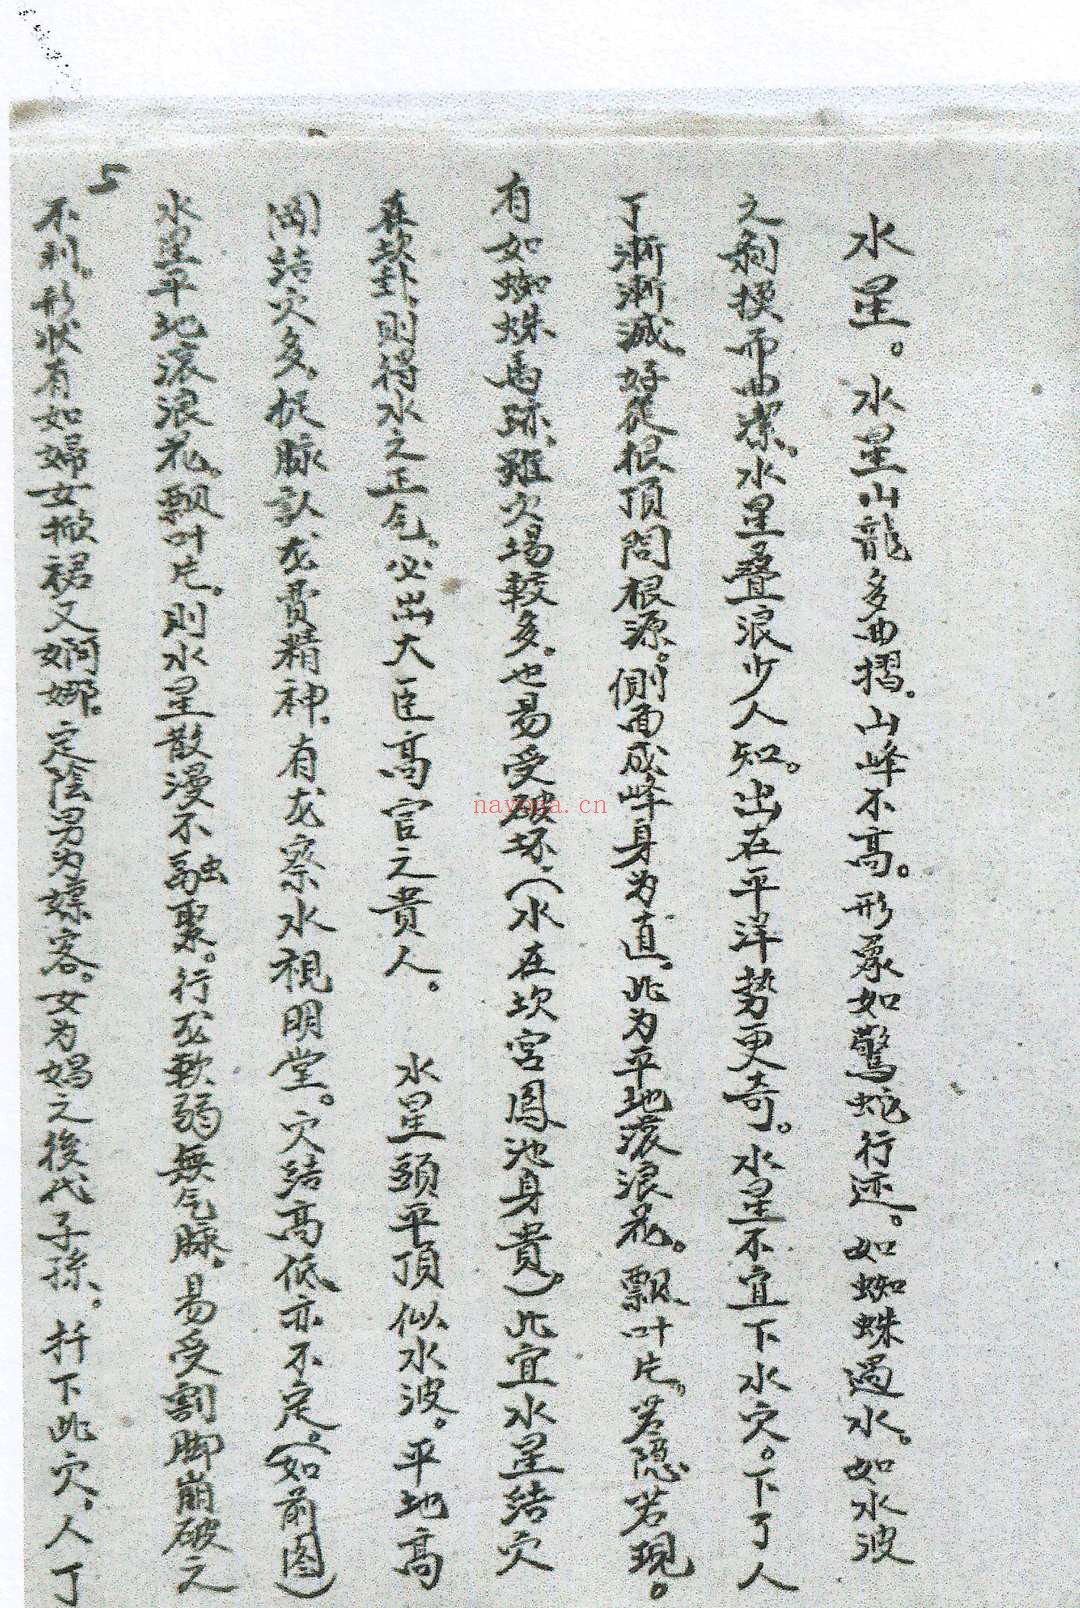 水星。水星山龍多曲摺。山峰不高。形象如驚蛇行迹。如蜘蛛過水。如水波
之剥换而曲潔。水星叠浪少人知。出在平洋势更奇。水星不宜下水穴。下了人
丁渐渐減。好從根頂問根源。側面成峰身为直。此为平地滚浪花。飘叶片。若隐若现。
有如蜘蛛馬跡。虽穴場較多。也易受破坏。（水在坎宫鳳池身貴）。此宜水星结穴
在坎卦。則得水之正气。必出大臣高官之貴人。 水星頭平頂似水波。平地高
岡结穴多。捉脉认龙貴精神。有龙察水視明堂。穴结高低亦不定。（如前图）
水星平地滚浪花。飘叶片。則水星散漫不融聚。行龙軟弱無气脉。易受割脚崩破之
不利。形状有如婦女掀裙又婀娜。定陰男为嫖客。女为娼之後代子孫。扦下此穴。人丁
5
nayona.cn